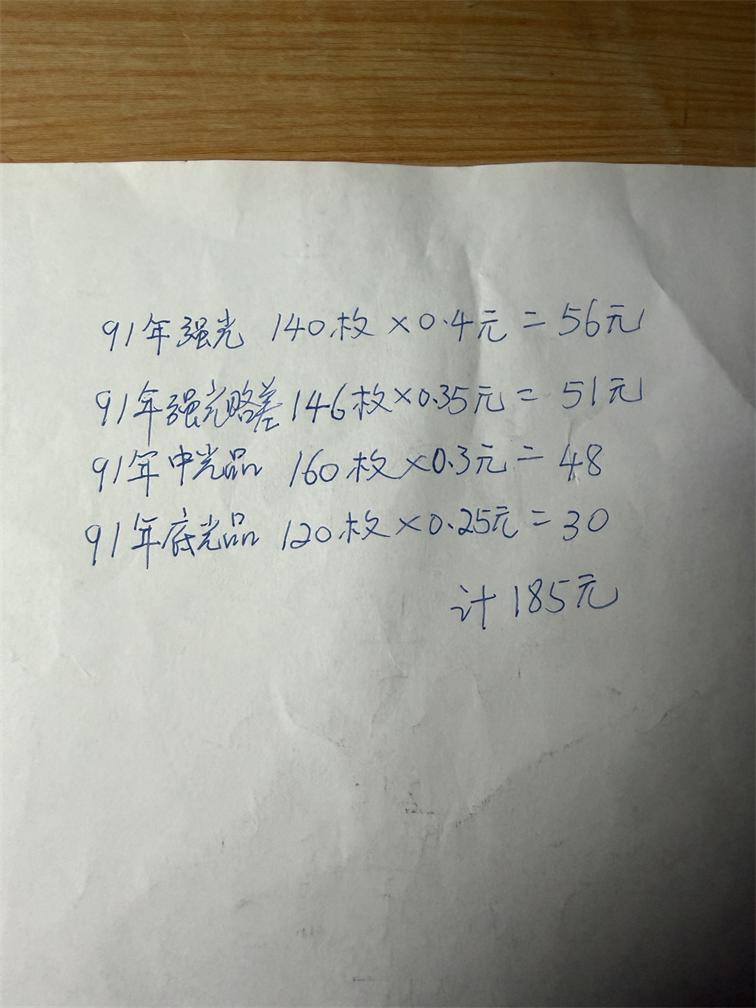 91年强光 140枚×0.4元=56元
91年强光略差146枚×0.35元=51元
91年中光品 160枚×0.3元=48
91年底光品 120枚×0.25元=30
计185元